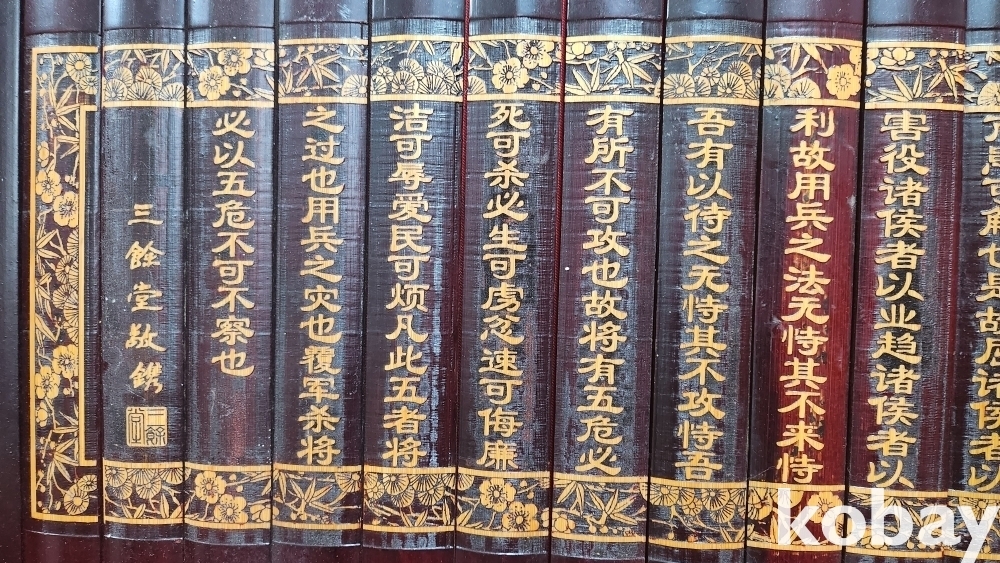 患可解也是故屈诸侯者以
害役诸侯者以业趋诸侯者以
利故用兵之法无恃其不来恃
吾有以待之无恃其不攻恃吾
有所不可攻也故将有五危必
死可杀必生可虏忿速可侮廉
洁可辱爱民可烦凡此五者将
之过也用兵之灾也覆军杀将
必以五危不可不察也
三餘堂敬鐫
kobay